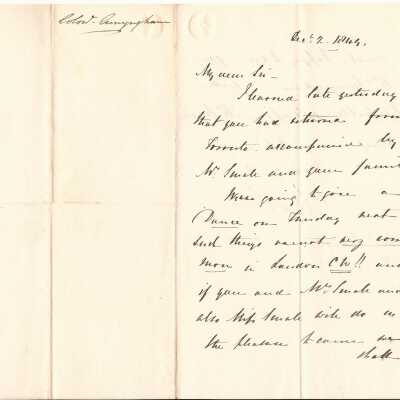 Colonel
Dec. 2.
My dear Sir -
I learned late yesterday
that you had returned from
Toronto accompanied by
Mr Smale and your famil
We are going to give a
Dance on Tuesday next
such things are not very com
mon in London C.W!! and
if you and Mr Smale and
also Miss Smale will do us
the pleasure to come we
shall